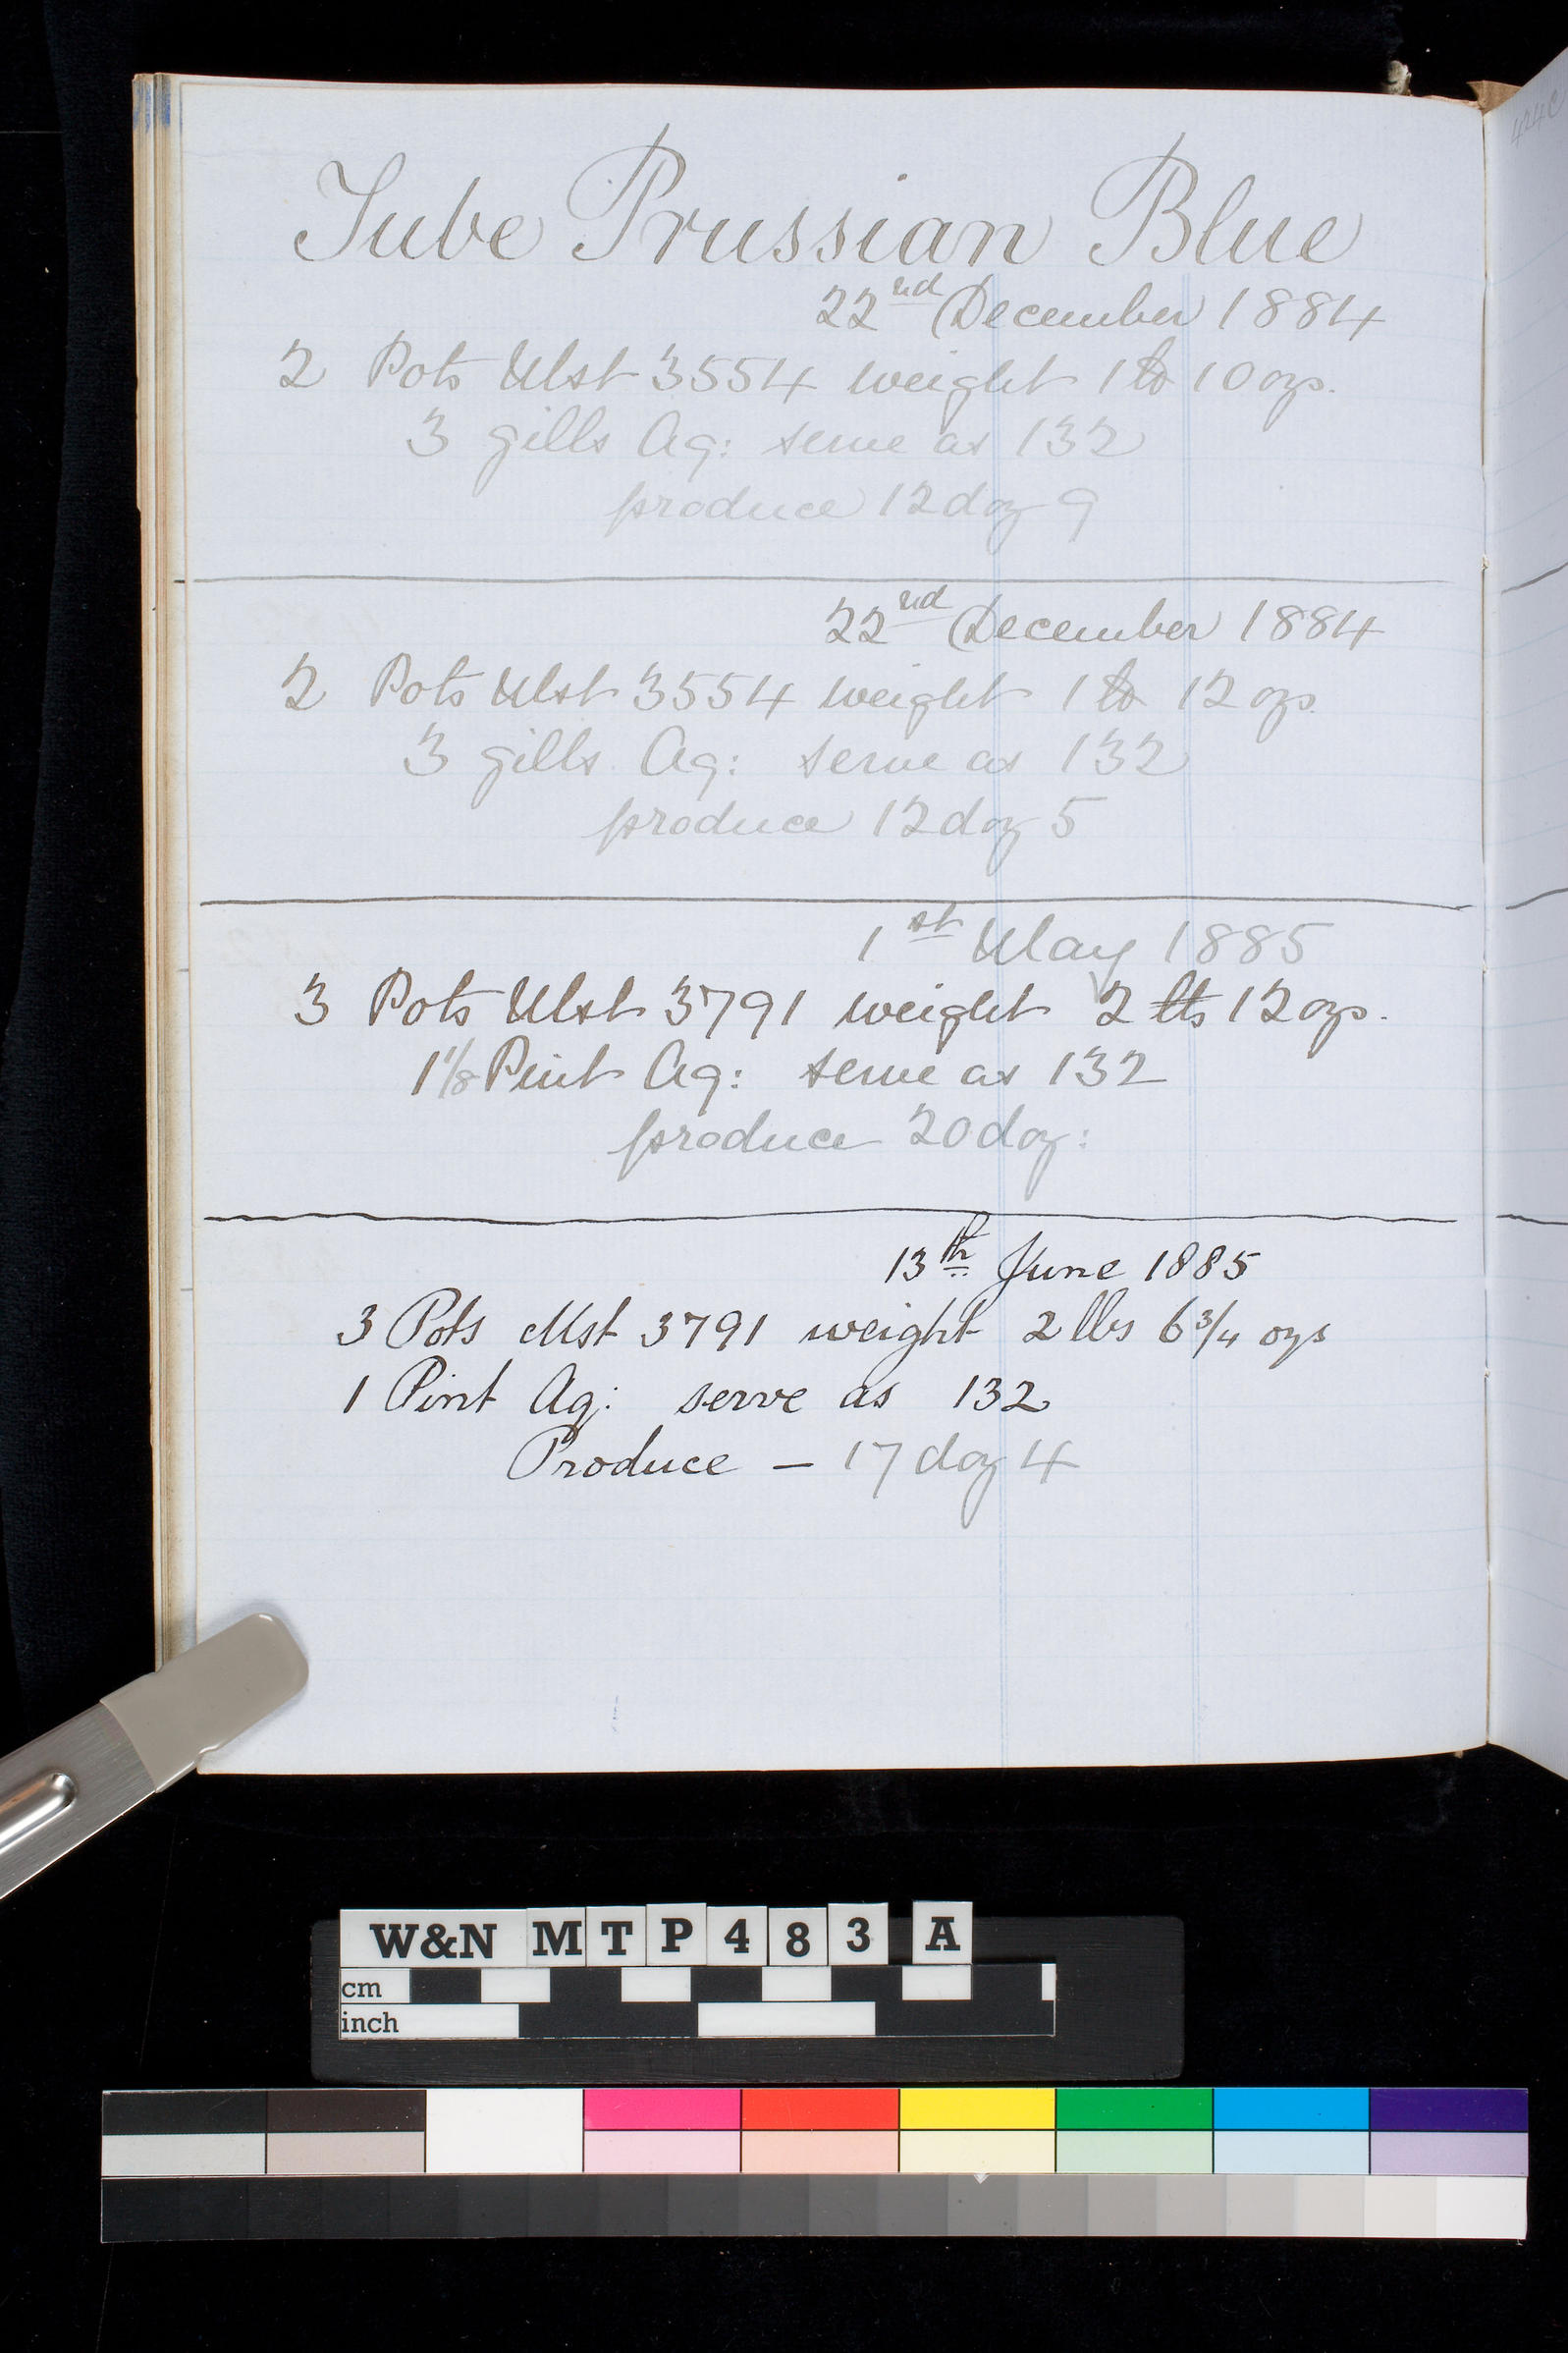 Tube Prussian Blue
22nd December 1884
2 Pots Mst 3554 weight 1 lb 10 ozs.
3 gills Aq: serve as 132
produce 12 doz 9
22nd December 1884
2 Pots Mst 3554 weight 1 lb 12 ozs.
3 gills Aq: serve as 132
produce 12 doz 5
1st May 1885
3 Pots Mst 3791 weight 2 lbs 12 ozs.
1 1/8 Pint Aq: serve as 132
produce 20 doz:
13th June 1885
3 Pots Mst 3791 weight 2 lbs 6 3/4 ozs
1 Pint Aq: serve as 132
Produce — 17 doz 4
W&N MTP483 A
cm
inch